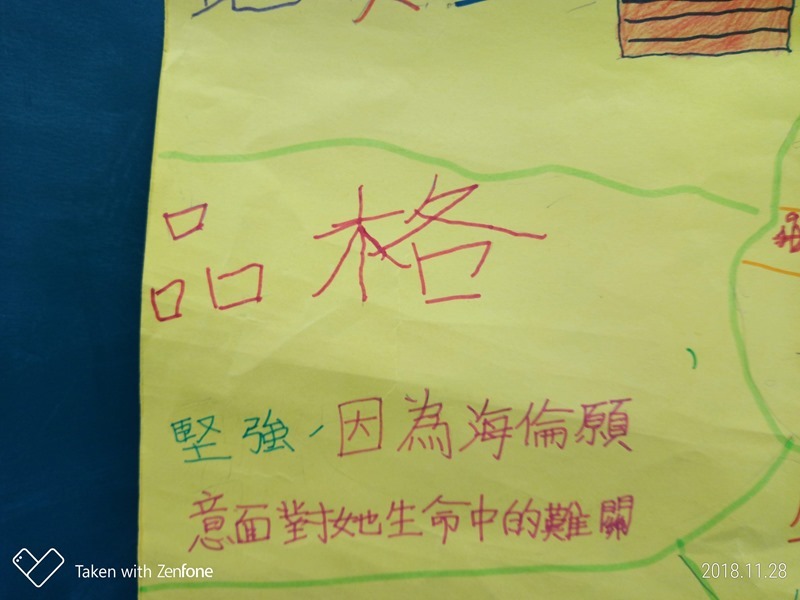 品格
堅強，因為海倫願
意面對她生命中的難關
Taken with Zenfone
2018.11.28